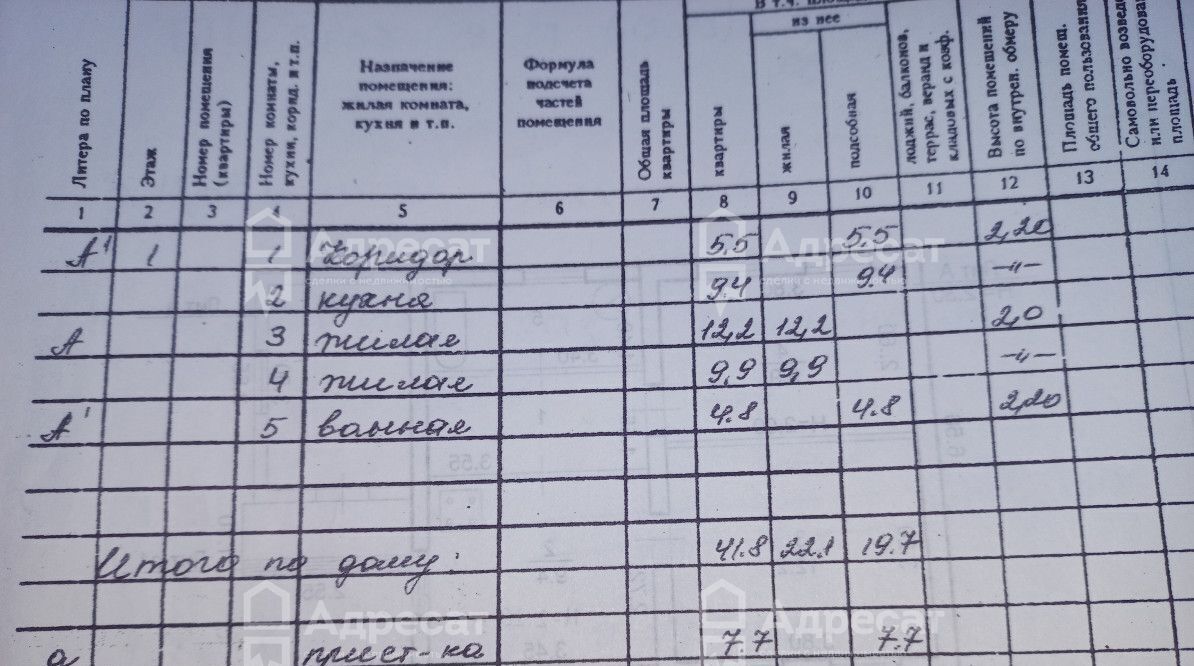 В т.ч. площадь
из нее
Литера по плану
Этаж
Номер помещения (квартиры)
Номер комнаты, кухни, корид. и т.п.
Назначение
помещения:
жилая комната,
кухня и т.п.
Формула
подсчета
частей
помещения
Общая площадь квартиры
квартиры
жилая
подсобная
лоджий, балконов, террас, веранд и кладовых с коэф.
Высота помещений по внутрен. обмеру
Площадь помещ. общего пользования
Самовольно возведен или переоборудован площадь
1 2 3 4 5 6 7 8 9 10 11 12 13 14
А¹ 1 1 Коридор 5,5 5.5 2,20
2 кухня 9.4 9.4 -"-
А 3 жилая 12,2 12,2 2,0
4 жилая 9,9 9,9 -"-
А¹ 5 ванная 4.8 4.8 2,20
Итого по дому: 41.8 22.1 19.7
а прист-ка 7.7 7.7
Адресат
сделки с недвижимостью
Адресат
сделки с недвижимостью
Адресат
Адресат